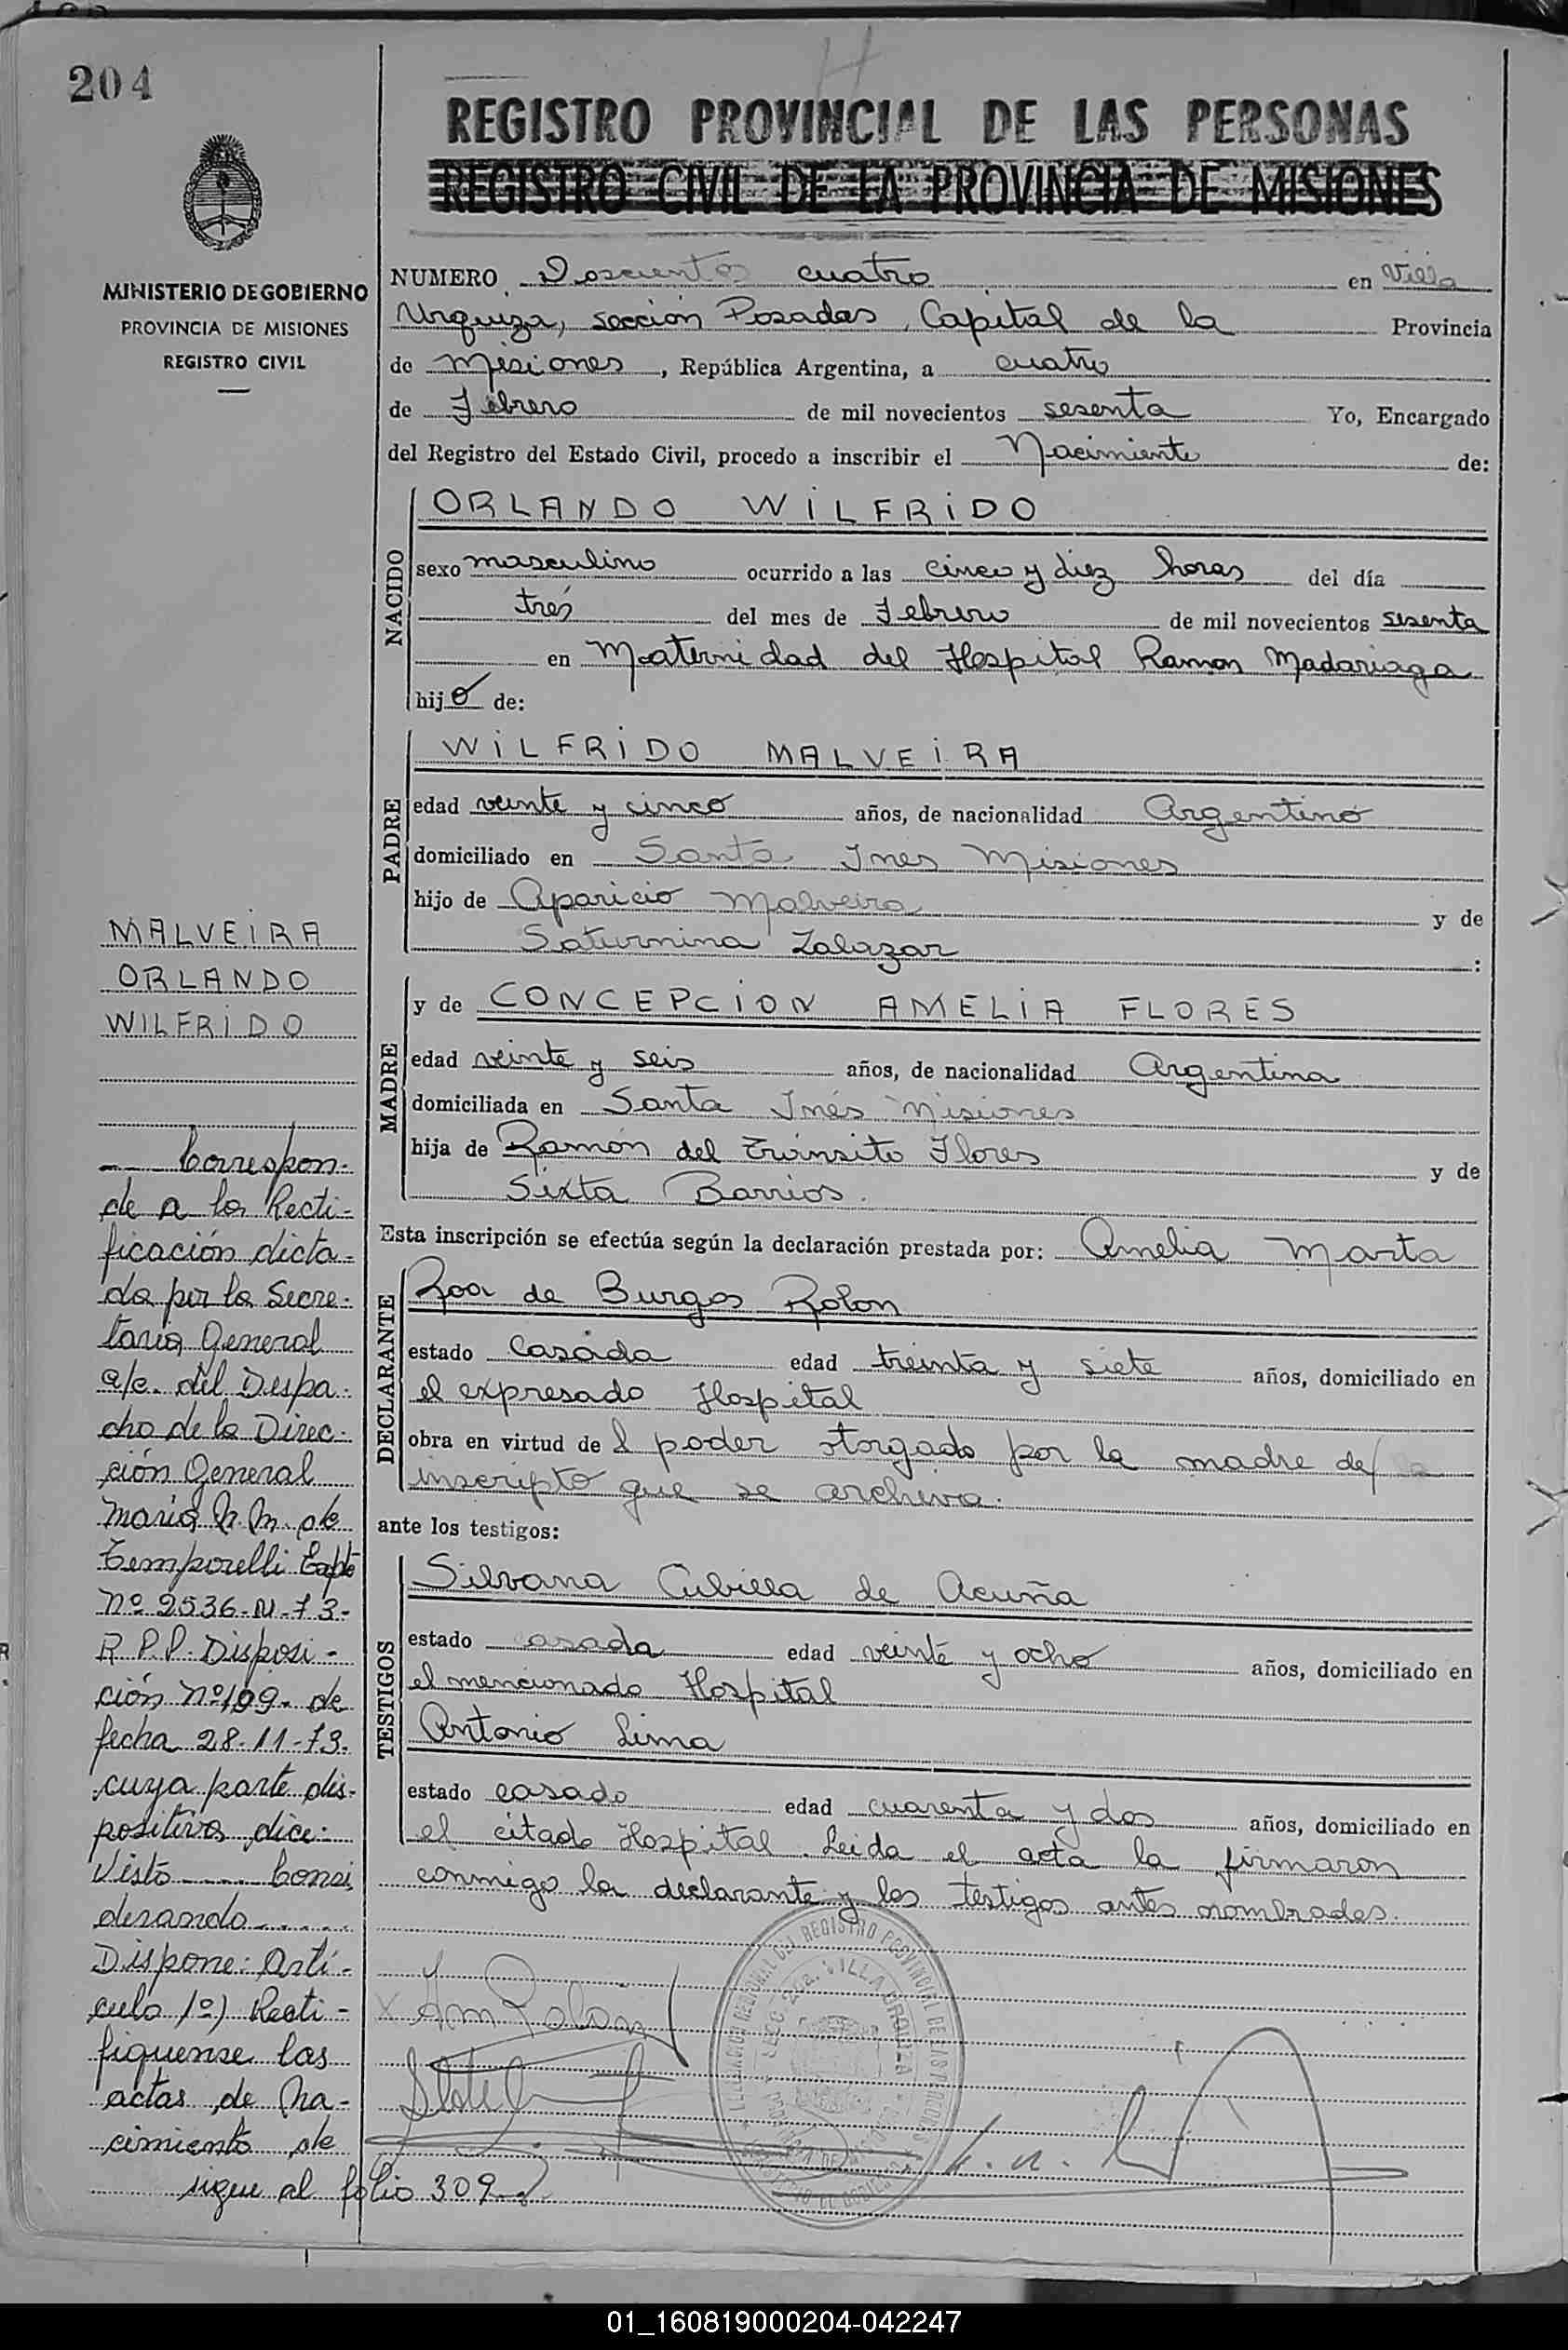 204
REGISTRO PROVINCIAL DE LAS PERSONAS
REGISTRO CIVIL DE LA PROVINCIA DE MISIONES
MINISTERIO DE GOBIERNO
PROVINCIA DE MISIONES
REGISTRO CIVIL
NUMERO Doscientos cuatro en Villa
Urquiza, sección Posadas, Capital de la Provincia
de Misiones, República Argentina, a cuatro
de Febrero de mil novecientos sesenta Yo, Encargado
del Registro del Estado Civil, procedo a inscribir el Nacimiento de:
NACIDO
ORLANDO WILFRIDO
sexo masculino ocurrido a las cinco y diez horas del día
tres del mes de Febrero de mil novecientos sesenta
en Maternidad del Hospital Ramon Madariaga
hijo de:
PADRE
WILFRIDO MALVEIRA
edad veinte y cinco años, de nacionalidad Argentino
domiciliado en Santa Ines Misiones
hijo de Aparicio Malveira y de
Saturnina Zalazar :
MADRE
y de CONCEPCION AMELIA FLORES
edad veinte y seis años, de nacionalidad Argentina
domiciliada en Santa Inés Misiones
hija de Ramón del Tránsito Flores y de
Sixta Barrios.
Esta inscripción se efectúa según la declaración prestada por: Amelia Marta
DECLARANTE
Roa de Burgos Rolon
estado Casada edad treinta y siete años, domiciliado en
el expresado Hospital
obra en virtud del poder otorgado por la madre del
inscripto que se archiva.
ante los testigos:
TESTIGOS
Silvana Cubilla de Acuña
estado casada edad veinte y ocho años, domiciliado en
el mencionado Hospital
Antonio Lima
estado casado edad cuarenta y dos años, domiciliado en
el citado Hospital. Leida el acta la firmaron
conmigo la declarante y los testigos antes nombrados.
MALVEIRA
ORLANDO
WILFRIDO
Correspon-
de a la Recti-
ficación dicta-
da por la Secre-
taria General
a/c. del Despa-
cho de la Direc-
ción General
Maria N. M. de
Temporelli Expte
Nº 2536-N-73-
R.P.P. Disposi-
ción nº 109- de
fecha 28-11-73-
cuya parte dis-
positiva dice:
Visto ..... Consi
derando .....
Dispone: Artí-
culo 1º) Recti-
fiquense las
actas de Na-
cimiento de
sigue al folio 309
REGISTRO PROVINCIAL DE LAS PERSONAS
VILLA URQUIZA
01_160819000204-042247